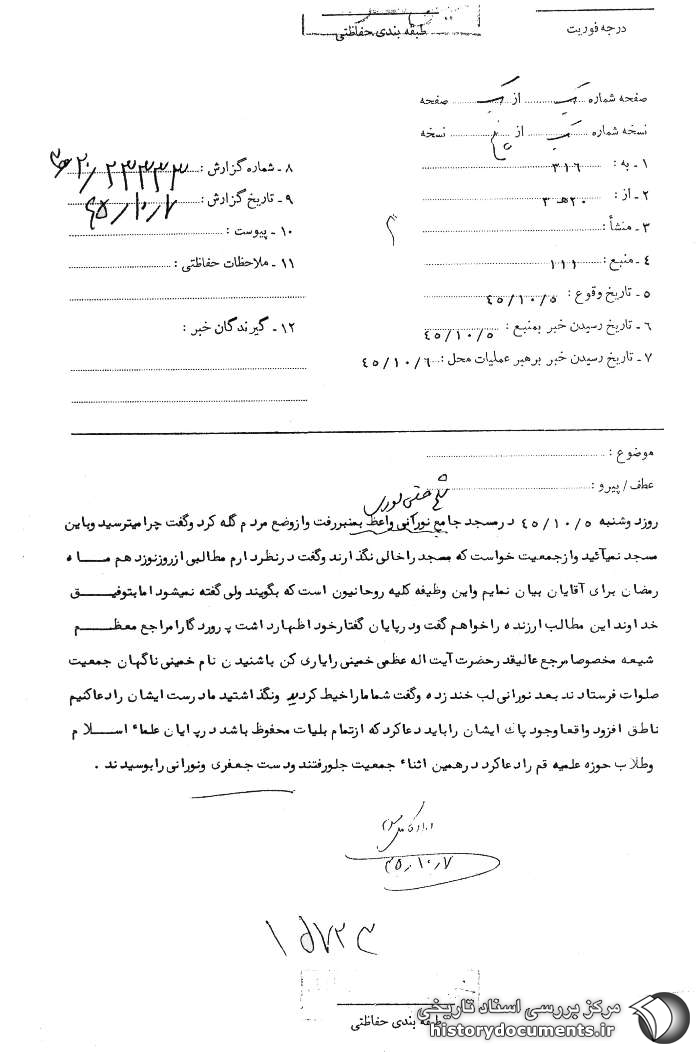 طبقه بندی حفاظتی
درجه فوریت
صفحه شماره یک از یک صفحه
نسخه شماره یک از پنج نسخه
۱ـ به : ۳۱۶
۲ـ از : ۲۰هـ ۳
۳ـ منشأ :
۴ـ منبع : ۱۱۱
۵ـ تاریخ وقوع : ۴۵/۱۰/۵
۶ـ تاریخ رسیدن خبر بمنبع : ۴۵/۱۰/۵
۷ـ تاریخ رسیدن خبر برهبر عملیات محل : ۴۵/۱۰/۶
۸ـ شماره گزارش : ۲۳۳۳۳/۲۰ هـ ۳
۹ـ تاریخ گزارش : ۴۵/۱۰/۷
۱۰ـ پیوست :
۱۱ـ ملاحظات حفاظتی :
۱۲ـ گیرندگان خبر :
موضوع :
عطف/پیرو :
روز دوشنبه ۴۵/۱۰/۵ در مسجد جامع نورانی واعظ بمنبر رفت و از وضع مردم گله کرد و گفت چرا میترسید و باین
مسجد نمیآئید و از جمعیت خواست که مسجد را خالی نگذارند و گفت در نظر دارم مطالبی از روز نوزدهم مـــاه
رمضان برای آقایان بیان نمایم و این وظیفه کلیه روحانیون است که بگویند ولی گفته نمیشود اما بتوفیـــق
خداوند این مطالب ارزنده را خواهم گفت و در پایان گفتار خود اظهار داشت پروردگارا مراجع معظـــم
شیعه مخصوصا مرجع عالیقدر حضرت آیت اله عظمی خمینی را یاری کن باشنیدن نام خمینی ناگهان جمعیت
صلوات فرستادند بعد نورانی لبخند زده و گفت شما ما را خیط کردید و نگذاشتید ما درست ایشان را دعا کنیم
ناطق افزود واقعا وجود پاک ایشان را باید دعا کرد که از تمام بلیات محفوظ باشد در پایان علماء اســـلام
و طلاب حوزه علمیه قم را دعا کرد در همین اثناء جمعیت جلو رفتند و دست جعفری و نورانی را بوسیدند .
۴۵/۱۰/۷
طبقه بندی حفاظتی
مرکز بررسی اسناد تاریخی
historydocuments.ir